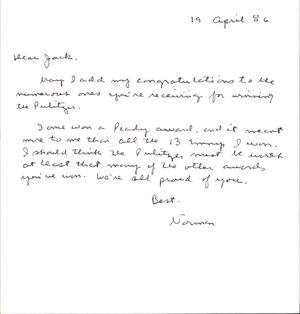 19 April '86
Dear Jack.
May I add my congratulations to the
numerous ones you're receiving for winning
the Pulitzer.
I once won a Peabody award, and it meant
more to me than all the 13 Emmys I won.
I should think the Pulitzer must be worth
at least that many of the other awards
you've won. We're all proud of you.
Best.
Norman